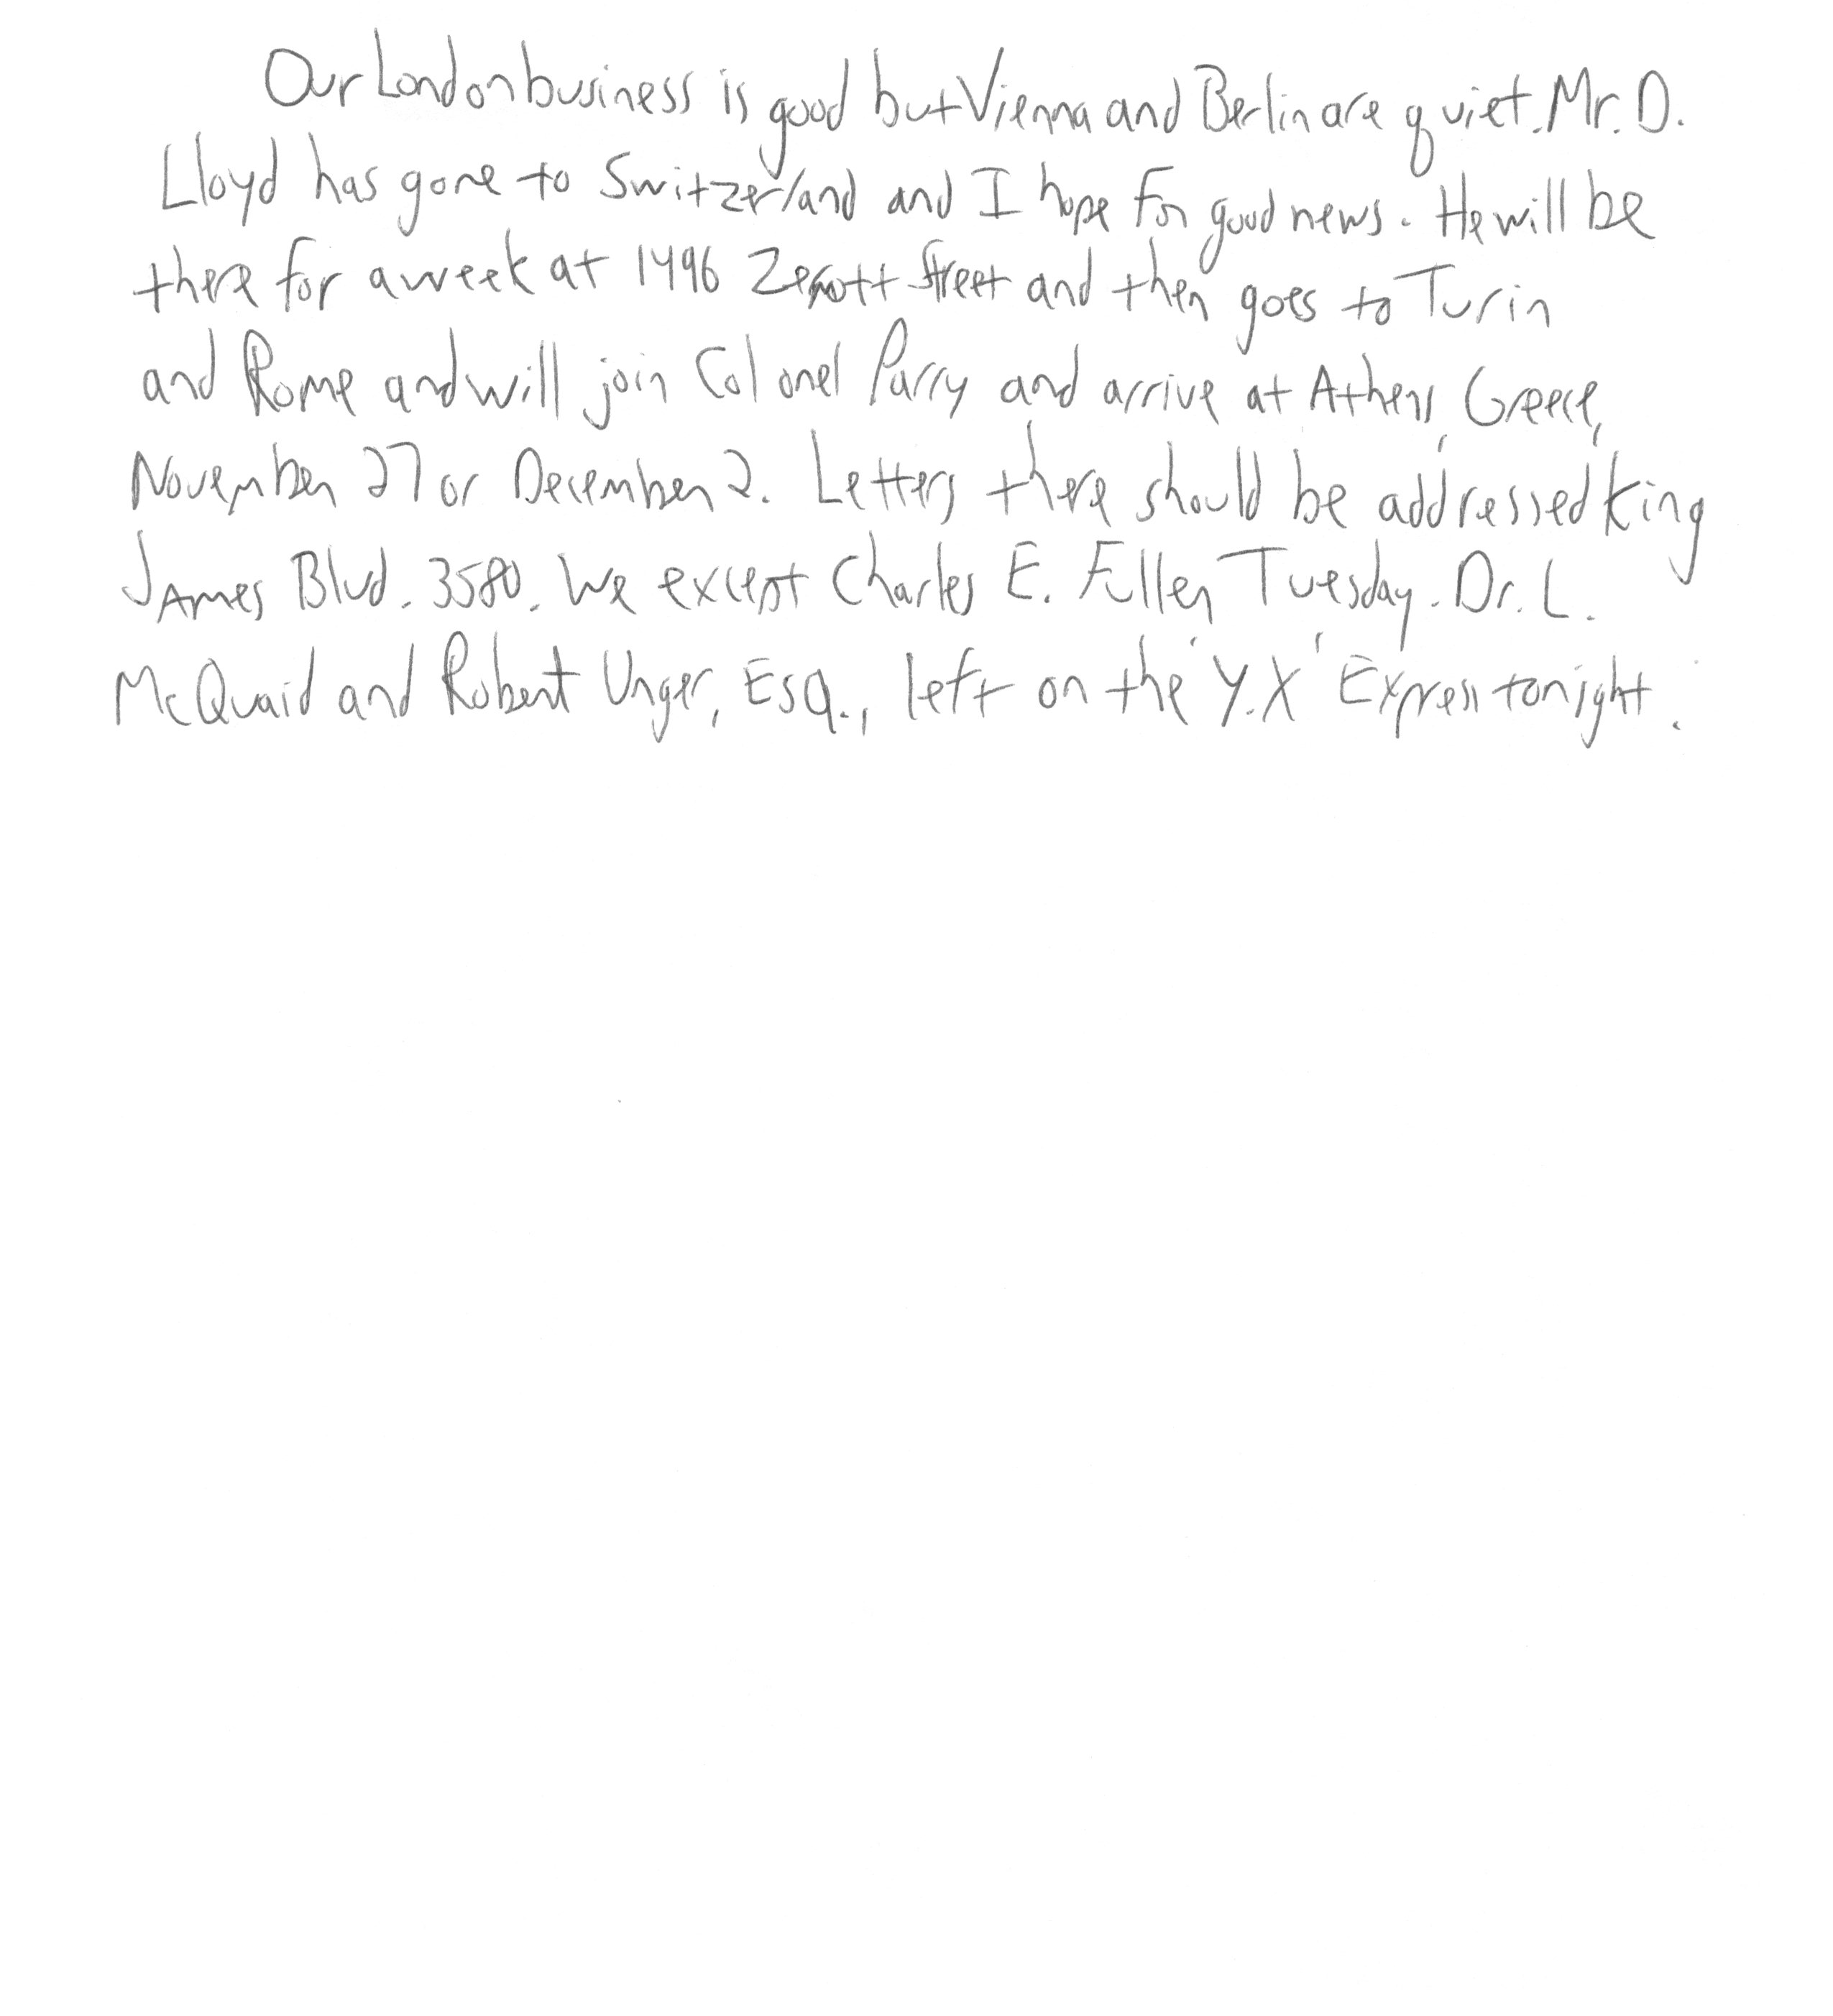 Our London business is good but Vienna and Berlin are quiet. Mr. D.
Lloyd has gone to Switzerland and I hope for good news. He will be
there for a week at 1496 Zermott Street and then goes to Turin
and Rome and will join Colonel Parry and arrive at Athens, Greece,
November 27 or December 2. Letters there should be addressed King
James Blvd. 3580. We except Charles E. Fuller Tuesday. Dr. L.
McQuaid and Robert Unger, Esq., left on the 'Y.X' Express tonight.